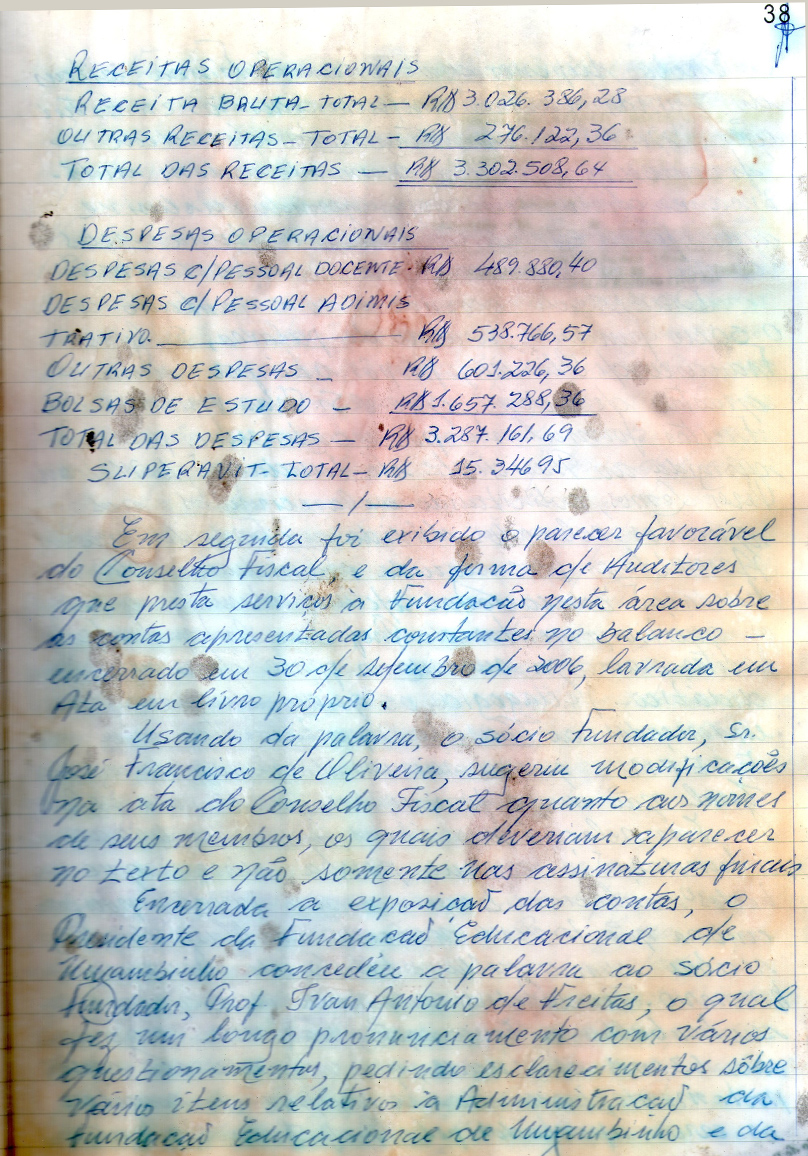 38
RECEITAS OPERACIONAIS
RECEITA BRUTA-TOTAL — R$ 3.026.386,28
OUTRAS RECEITAS-TOTAL - R$ 276.122,36
TOTAL DAS RECEITAS — R$ 3.302.508,64
DESPESAS OPERACIONAIS
DESPESAS C/PESSOAL DOCENTE. R$ 489.880,40
DESPESAS C/PESSOAL ADIMIS
TRATIVO. ____ R$ 538.766,57
OUTRAS DESPESAS - R$ 601.226,36
BOLSAS DE ESTUDO - R$ 1.657.288,36
TOTAL DAS DESPESAS — R$ 3.287.161,69
SUPERAVIT-TOTAL- R$ 15.34695
— / —
Em seguida foi exibido o parecer favorável
do Conselho Fiscal, e da firma de Auditores
que presta serviços a Fundação nesta área sobre
as contas apresentadas constantes no balanco —
encerrado em 30 de setembro de 2006, lavrada em
Ata em livro próprio.
Usando da palavra, o sócio Fundador, Sr.
José Francisco de Oliveira, sugeriu modificacões
na ata do Conselho Fiscal quanto aos nomes
de seus membros, os quais deveriam aparecer
no texto e não somente nas assinaturas finais
Encerrada a exposicaõ das contas, o
Presidente da Fundacaõ Educacional de
Muzambinho concedeu a palavra ao sócio
Fundador, Prof Ivan Antonio de Freitas, o qual
fez um longo pronunciamento com vários
questionamentos, pedindo esclarecimentos sôbre
vários itens relativos à Administracaõ da
Fundacaõ Educacional de Muzambinho e da